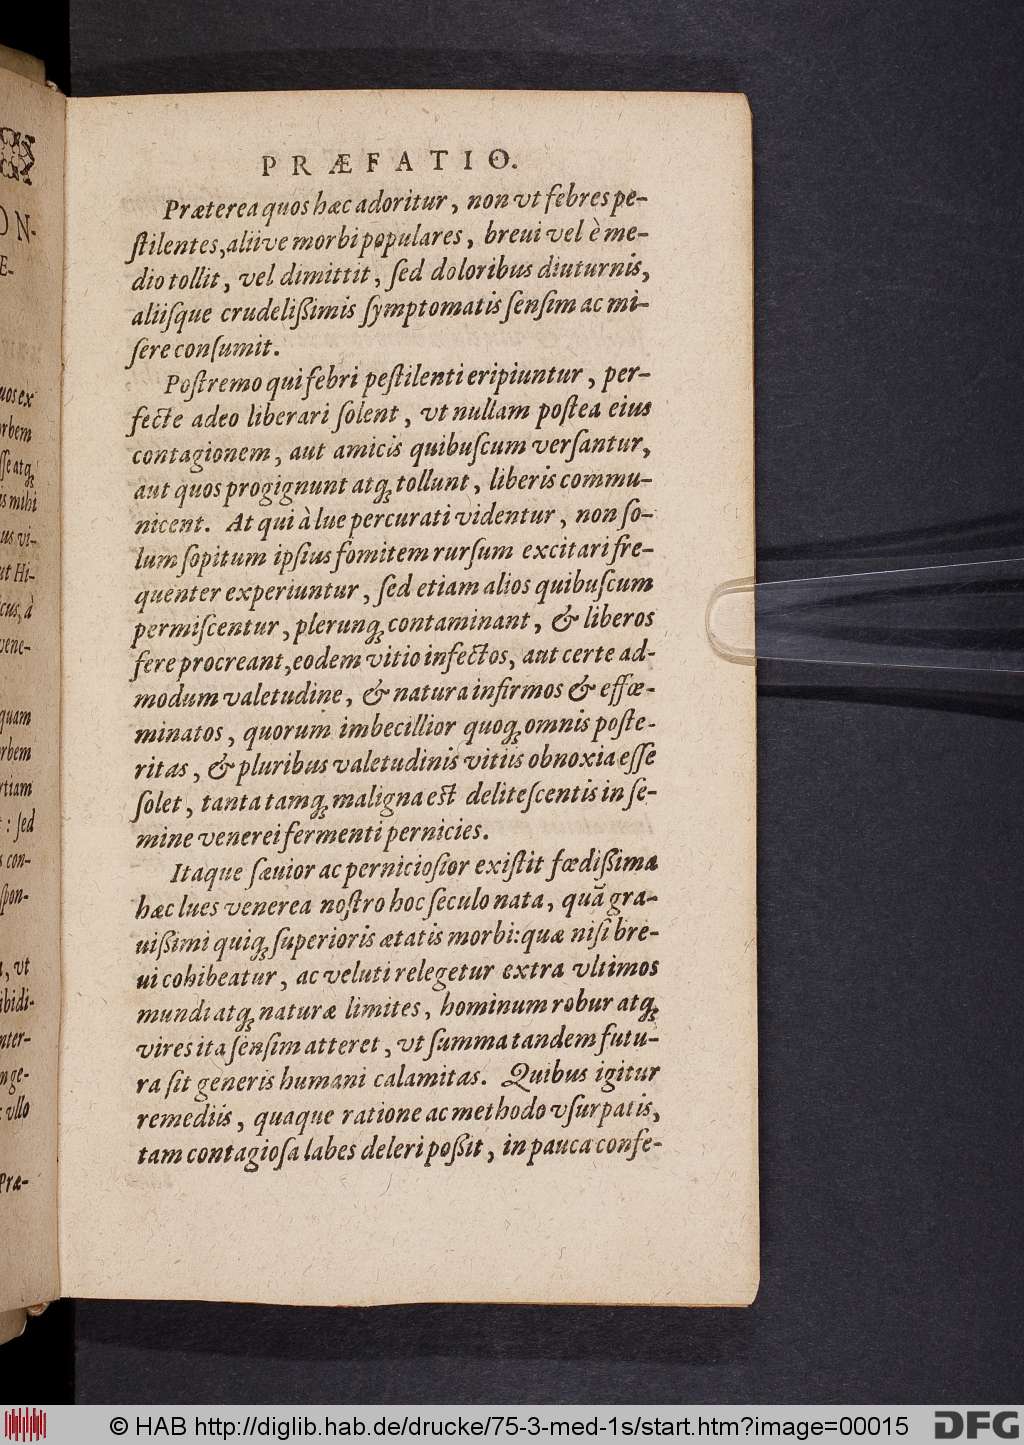 PRÆFATIO.
Præterea quos hæc adoritur, non vt febres pe-
ſtilentes, aliive morbi populares, breui vel è me-
dio tollit, vel dimittit, ſed doloribus diuturnis,
aliiſque crudelißimis ſymptomatis ſenſim ac mi-
ſere conſumit.
Poſtremo qui febri peſtilenti eripiuntur, per-
fecte adeo liberari ſolent, vt nullam poſtea eius
contagionem, aut amicis quibuſcum verſantur,
aut quos progignunt atq; tollunt, liberis commu-
nicent. At qui à lue percurati videntur, non ſo-
lum ſopitum ipſius fomitem rurſum excitari fre-
quenter experiuntur, ſed etiam alios quibuſcum
permiſcentur, plerunq; contaminant, & liberos
fere procreant, eodem vitio infectos, aut certe ad-
modum valetudine, & natura infirmos & effœ-
minatos, quorum imbecillior quoq; omnis poſte-
ritas, & pluribus valetudinis vitiis obnoxia eſſe
ſolet, tanta tamq; maligna est deliteſcentis in ſe-
mine venerei fermenti pernicies.
Itaque ſæuior ac pernicioſior exiſtit fœdißima
hæc lues venerea noſtro hoc ſeculo nata, quã gra-
uißimi quiq; ſuperioris ætatis morbi: quæ niſi bre-
ui cohibeatur, ac veluti relegetur extra vltimos
mundi atq; naturæ limites, hominum robur atq;
vires ita ſenſim atteret, vt ſumma tandem futu-
ra ſit generis humani calamitas. Quibus igitur
remediis, quaque ratione ac methodo vſurpatis,
tam contagioſa labes deleri poßit, in pauca confe-
© HAB http://diglib.hab.de/drucke/75-3-med-1s/start.htm?image=00015
DFG